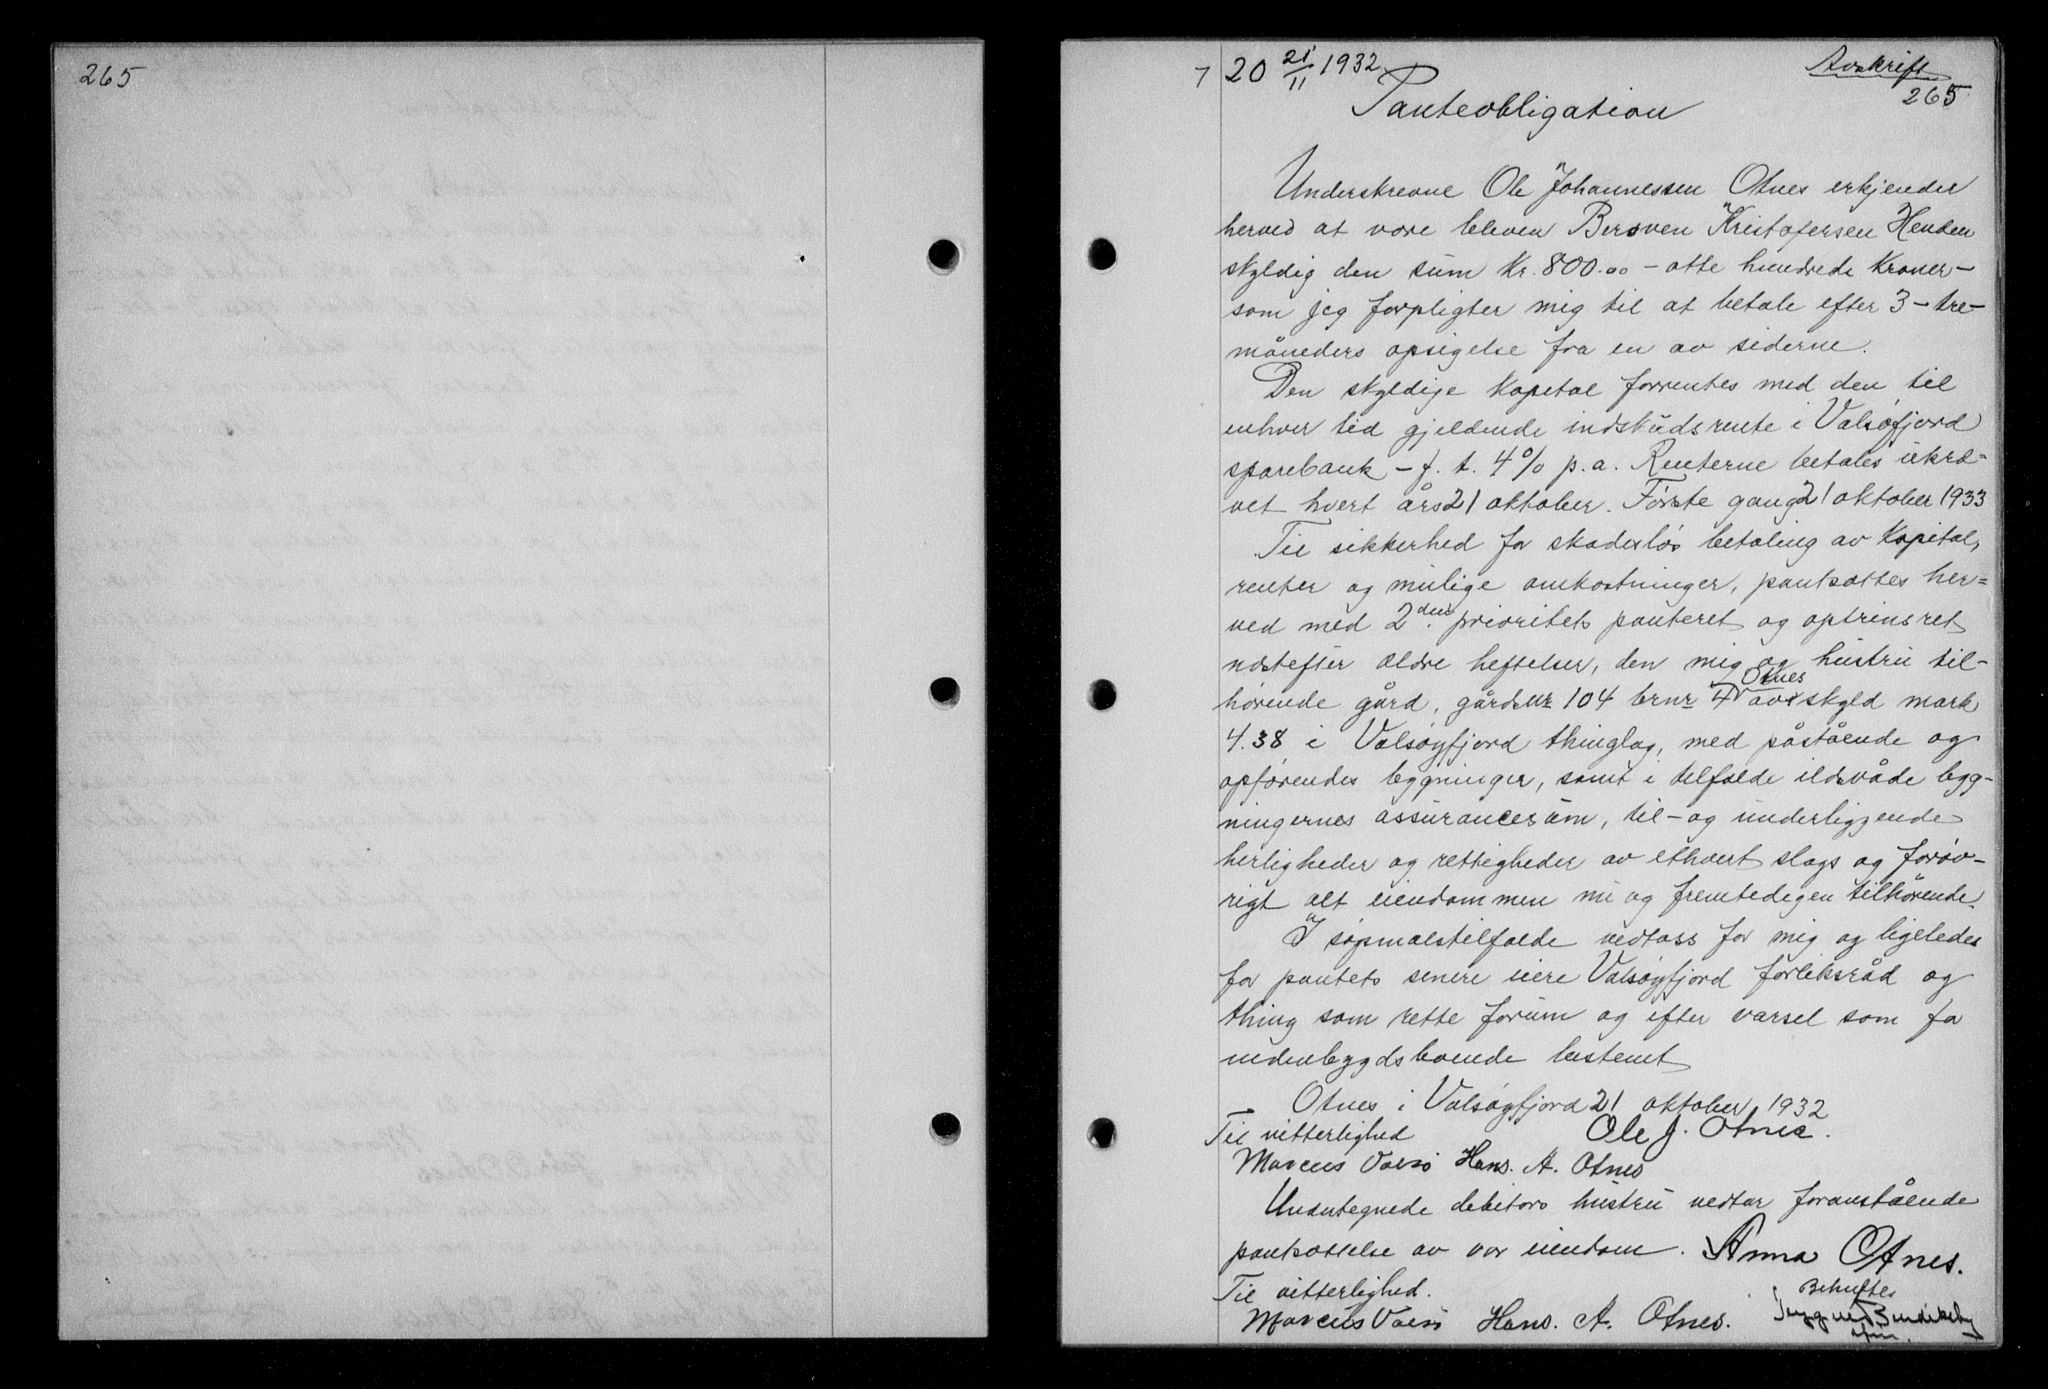 265
7 20 21/11 1932.
Avskrift
265
Panteobligation
Underskrevne Ole Johannessen Otnes erkjender
herved at være bleven Bersven Kristofersen Henden
skyldig den sum Kr. 800.00 - otte hundrede Kroner -
som jeg forpligter mig til at betale efter 3 - tre -
måneders opsigelse fra en av siderne.
Den skyldige Kapital forrentes med den til
enhver tid gjeldende indskudsrente i Valsøfjord
sparebank - f. t. 4 % p. a. Renterne betales ukræ-
vet hvert års 21 oktober. Første gang 21 oktober 1933
Til sikkerhed for skadesløs betaling av Kapital,
renter og mulige omkostninger, pantsættes her=
ved med 2den prioritets panteret og optrinsret
næstefter ældre heftelser, den mig og hustru til-
hørende gård, gårds nr 104 brnr 4 Otnes av skyld mark
4.38 i Valsøyfjord thinglag, med påstående og
opførendes bygninger, samt i tilfælde ildsvåde byg-
ningernes assurancesum, til- og underliggende
herligheder og rettigheder av ethvert slags og forøv-
rigt alt eiendommen nu og fremtedigen tilhørende.
I søpmaalstilfælde vedtass for mig og ligeledes
for pantets senere eiere Valsøyfjord forliksråd og
thing som rette forum og efter varsel som for
indenbygdsboende bestemt
Otnes i Valsøyfjord 21 oktober 1932
Til vitterlighed
Ole J. Otnes.
Marcus Valsø Hans. A. Otnes
Undertegnede debitors hustru vedtar foranstående
pantsættelse av vor eiendom. Anna Otnes.
Til vitterlighed.
Marcus Valsø Hans. A. Otnes.
Bekræftes